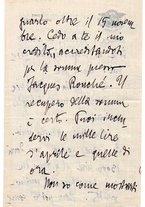 quanto oltre il 15 novem
bre. Cedo a te il mio
credito, accreditandoti
per la somma presso
Jacques Rouché. Il
ricupero della somma
è certo. Puoi
le mille lire
d'aprile e quelle di
ora.
Non so come mostrarti